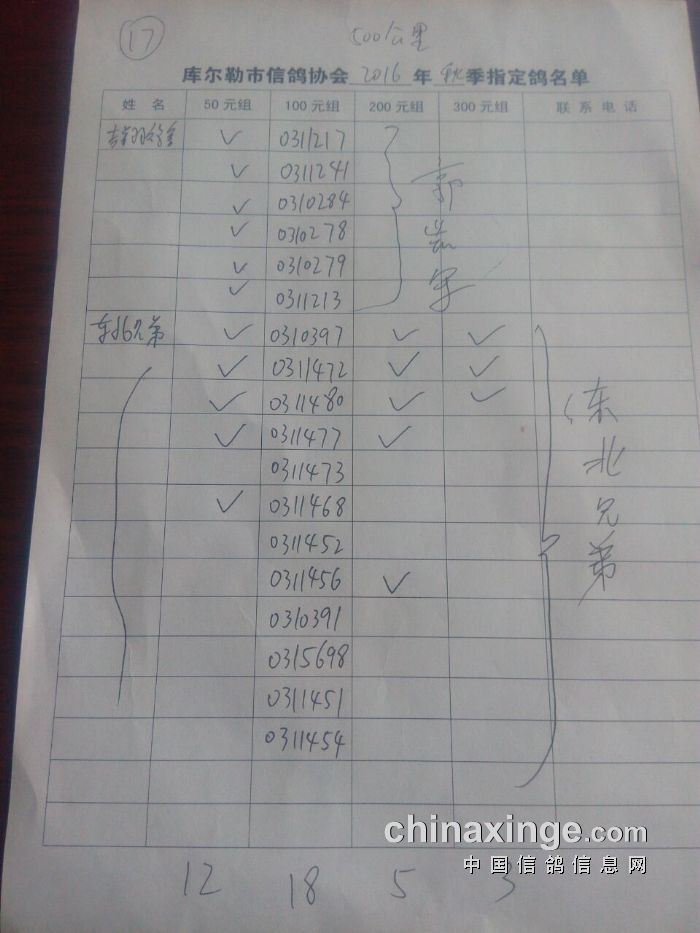 17
500公里
库尔勒市信鸽协会 2016 年 秋季指定鸽名单
姓 名 50元组 100元组 200元组 300元组 联系电话
✓ 0311217
✓ 0311241
✓ 0310284
✓ 0310278
✓ 0310279
✓ 0311213
郭
军
东北兄弟 ✓ 0310397 ✓ ✓
✓ 0311472 ✓ ✓
✓ 0311480 ✓ ✓
✓ 0311477 ✓
0311473
✓ 0311468
0311452
0311456 ✓
0310391
0315698
0311451
0311454
东
北
兄
弟
12 18 5 3
chinaxinge.com
中国信鸽信息网